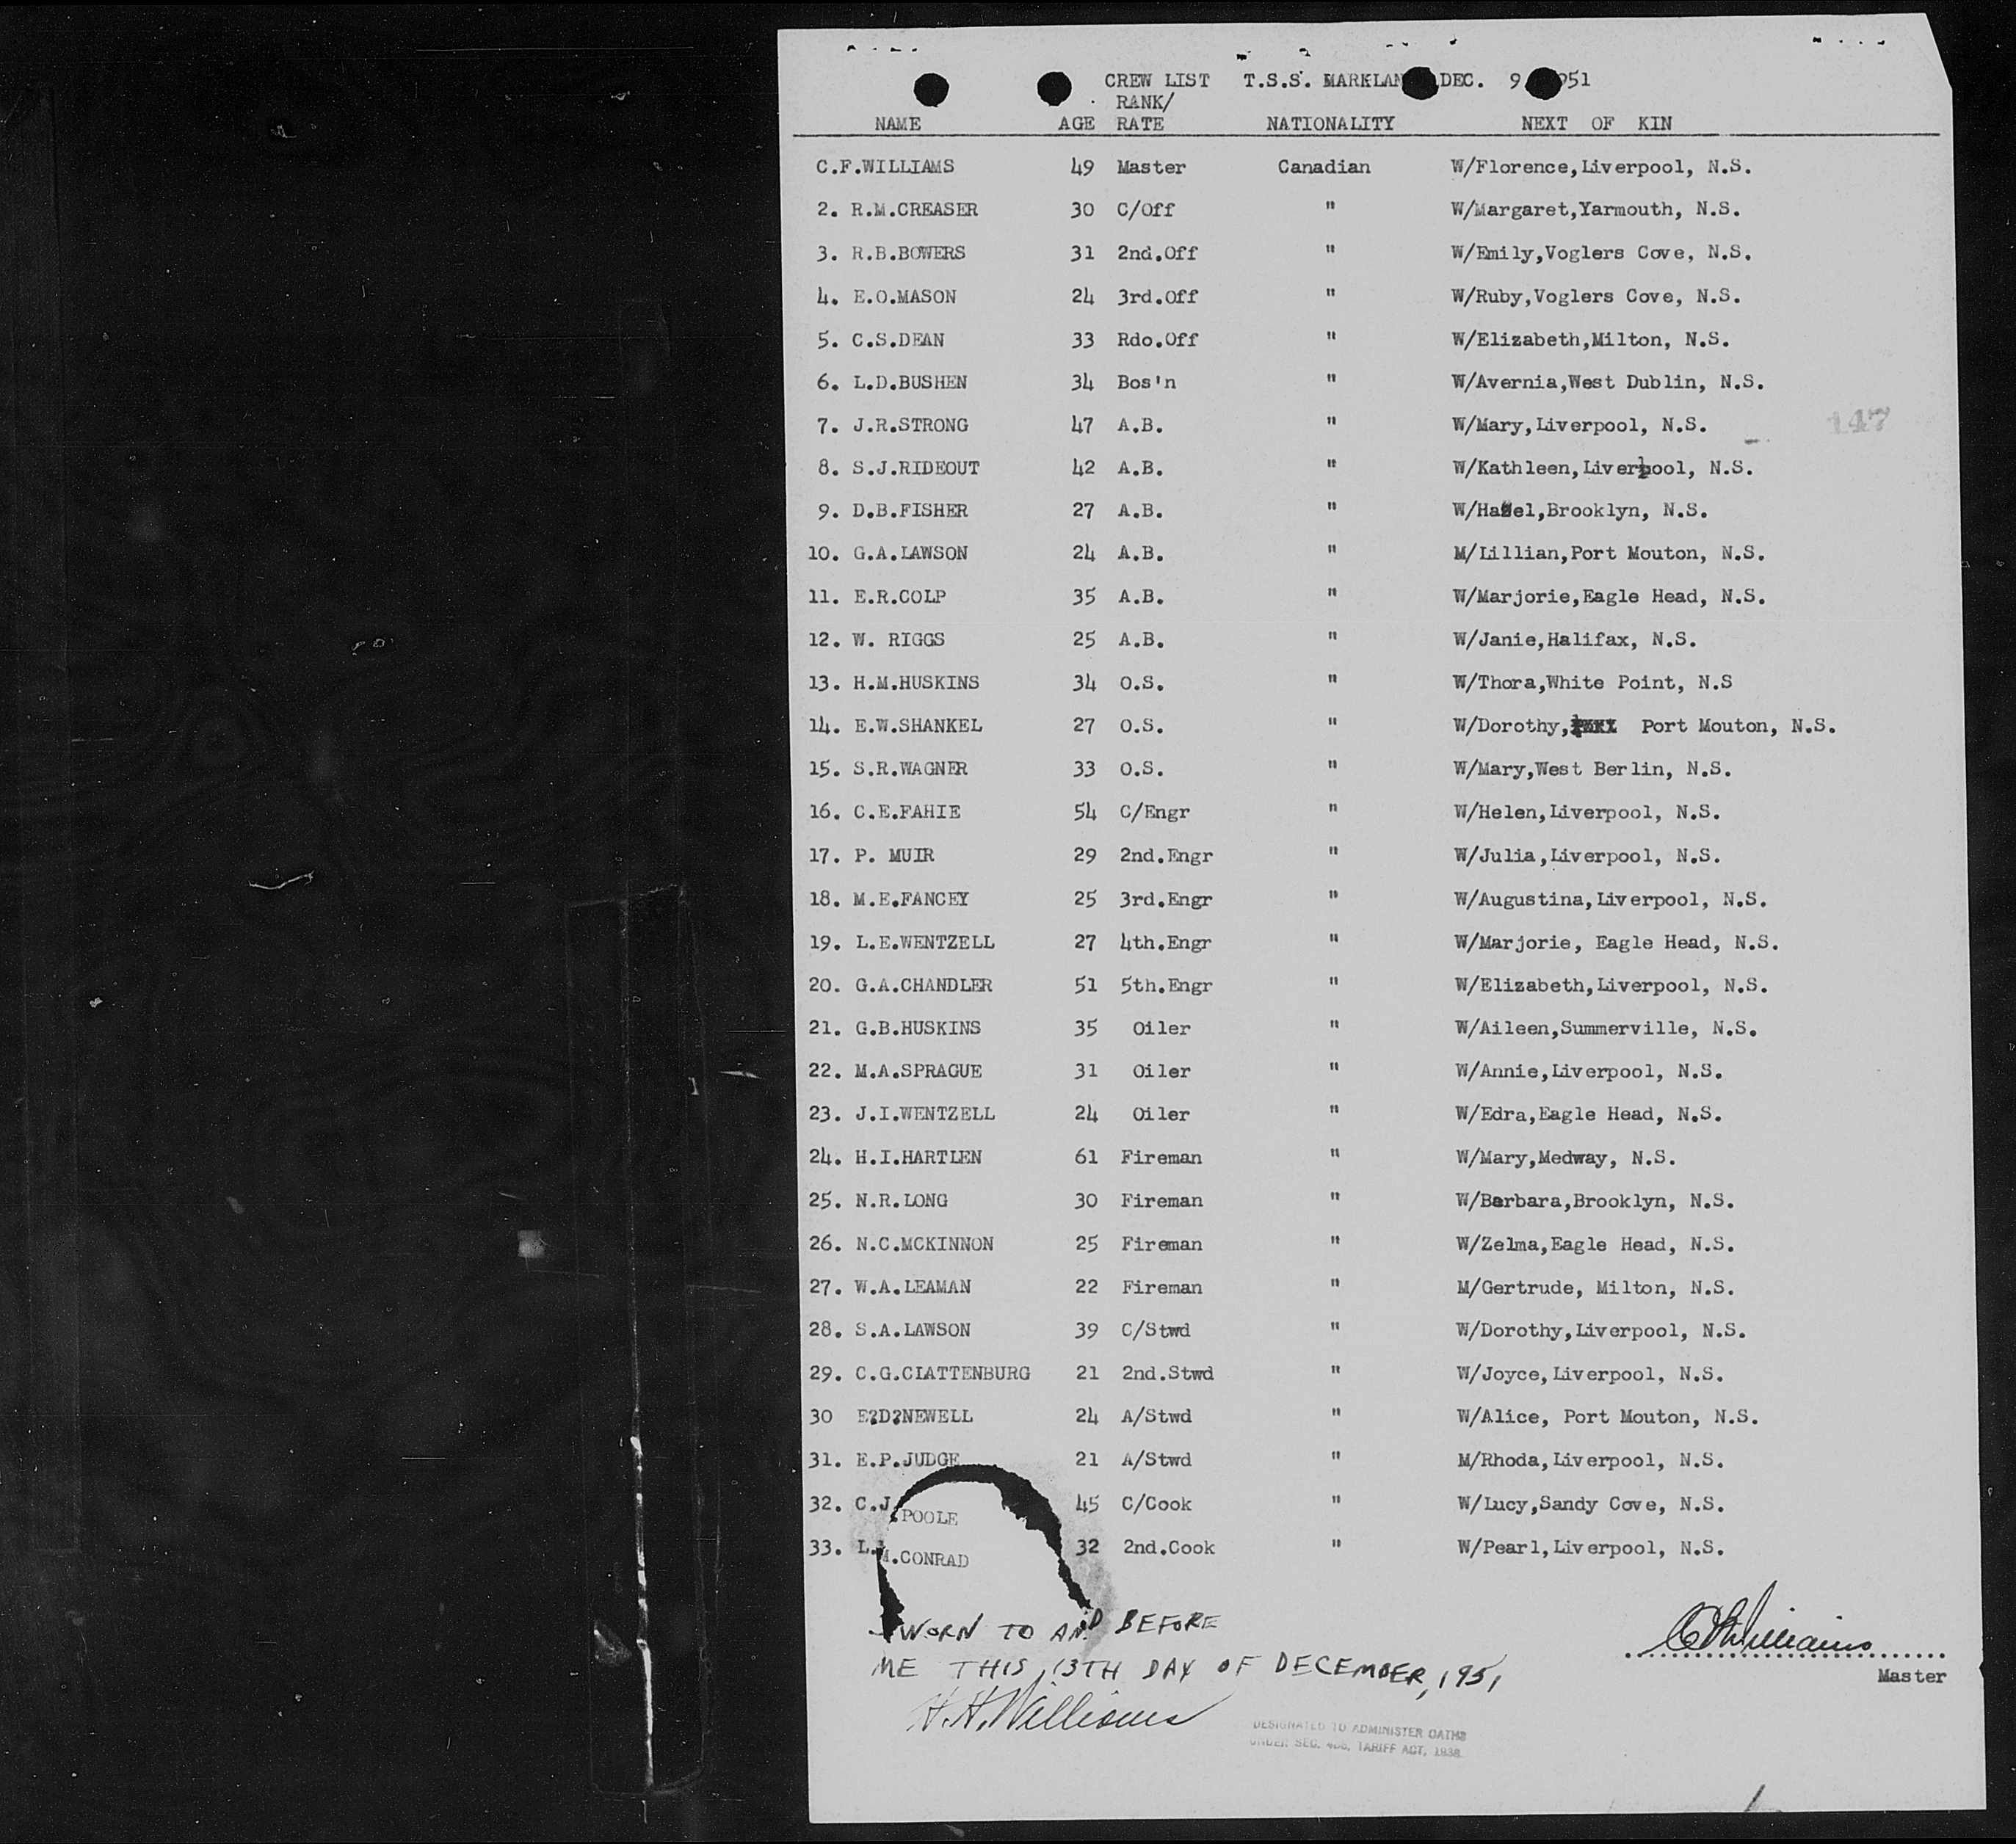 CREW LIST T.S.S. MARKLAN DEC. 9 951
RANK/
NAME AGE RATE NATIONALITY NEXT OF KIN
C.F.WILLIAMS 49 Master Canadian W/Florence,Liverpool, N.S.
2. R.M.CREASER 30 C/Off " W/Margaret,Yarmouth, N.S.
3. R.B.BOWERS 31 2nd.Off " W/Emily,Voglers Cove, N.S.
4. E.O.MASON 24 3rd.Off " W/Ruby,Voglers Cove, N.S.
5. C.S.DEAN 33 Rdo.Off " W/Elizabeth,Milton, N.S.
6. L.D.BUSHEN 34 Bos'n " W/Avernia,West Dublin, N.S.
7. J.R.STRONG 47 A.B. " W/Mary,Liverpool, N.S. 147
8. S.J.RIDEOUT 42 A.B. " W/Kathleen,Liverpool, N.S.
9. D.B.FISHER 27 A.B. " W/Hazel,Brooklyn, N.S.
10. G.A.LAWSON 24 A.B. " M/Lillian,Port Mouton, N.S.
11. E.R.COLP 35 A.B. " W/Marjorie,Eagle Head, N.S.
12. W. RIGGS 25 A.B. " W/Janie,Halifax, N.S.
13. H.M.HUSKINS 34 O.S. " W/Thora,White Point, N.S
14. E.W.SHANKEL 27 O.S. " W/Dorothy, Port Mouton, N.S.
15. S.R.WAGNER 33 O.S. " W/Mary,West Berlin, N.S.
16. C.E.FAHIE 54 C/Engr " W/Helen,Liverpool, N.S.
17. P. MUIR 29 2nd.Engr " W/Julia,Liverpool, N.S.
18. M.E.FANCEY 25 3rd.Engr " W/Augustina,Liverpool, N.S.
19. L.E.WENTZELL 27 4th.Engr " W/Marjorie, Eagle Head, N.S.
20. G.A.CHANDLER 51 5th.Engr " W/Elizabeth,Liverpool, N.S.
21. G.B.HUSKINS 35 Oiler " W/Aileen,Summerville, N.S.
22. M.A.SPRAGUE 31 Oiler " W/Annie,Liverpool, N.S.
23. J.I.WENTZELL 24 Oiler " W/Edra,Eagle Head, N.S.
24. H.I.HARTLEN 61 Fireman " W/Mary,Medway, N.S.
25. N.R.LONG 30 Fireman " W/Barbara,Brooklyn, N.S.
26. N.C.MCKINNON 25 Fireman " W/Zelma,Eagle Head, N.S.
27. W.A.LEAMAN 22 Fireman " M/Gertrude, Milton, N.S.
28. S.A.LAWSON 39 C/Stwd " W/Dorothy,Liverpool, N.S.
29. C.G.CLATTENBURG 21 2nd.Stwd " W/Joyce,Liverpool, N.S.
30 E?D?NEWELL 24 A/Stwd " W/Alice, Port Mouton, N.S.
31. E.P.JUDGE 21 A/Stwd " M/Rhoda,Liverpool, N.S.
32. C.J.POOLE 45 C/Cook " W/Lucy,Sandy Cove, N.S.
33. L.M.CONRAD 32 2nd.Cook " W/Pearl,Liverpool, N.S.
SWORN TO AND BEFORE
ME THIS 13TH DAY OF DECEMBER, 1951
CF Williams
Master
H.H. Williams
DESIGNATED TO ADMINISTER OATHS
UNDER SEC. 486, TARIFF ACT, 1930